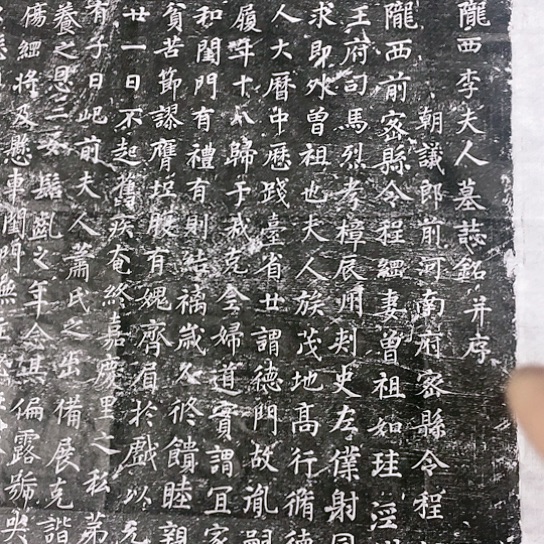 隴西李夫人墓誌銘并序
朝議郎前河南府密縣令程
隴西前密縣令程縕妻曾祖如珪涇
王府司馬烈考樟辰州刾史左僕射同
求即外曾祖也夫人族茂地高行循德
人大曆中歷踐臺省世謂德門故胤嗣
履年十八歸于我克令婦道實謂宜家
和閨門有禮有則結褵歲久終饋睦親
貧苦節謬膺坦腹有媿齊眉於戲以
廿一日不起舊疾奄終嘉慶里之私第
有子曰屺前夫人蕭氏之出備展克諧
養之恩三女髫齓之年念其偏露號哭
傷縕將及懸車閨門